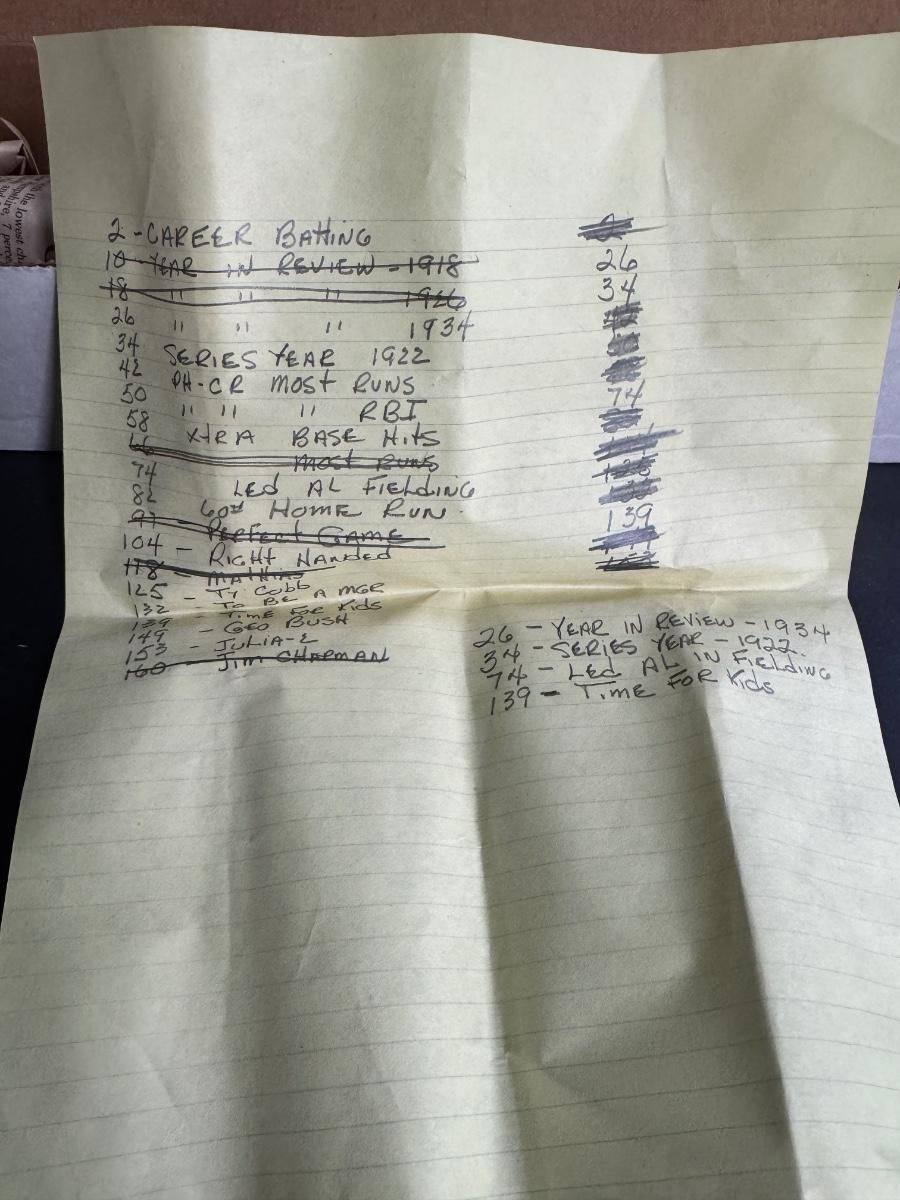 2 - CAREER BATTING
10 YEAR IN REVIEW - 1918
18 " " " 1926
26 " " " 1934
34 SERIES YEAR 1922
42 PH-CR MOST RUNS
50 " " " RBI
58 XTRA BASE HITS
66 MOST RUNS
74 LED AL FIELDING
82 60th HOME RUN
97 PERFECT GAME
104 - RIGHT HANDED
118 - MATHIAS
125 - TY COBB
132 - TO BE A MGR
139 - TIME FOR KIDS
149 - GEO BUSH
153 - JULIA-E
160 - JIM CHAPMAN
26
34
74
139
26 - YEAR IN REVIEW - 1934
34 - SERIES YEAR - 1922.
74 - LED AL IN FIELDING
139 - TIME FOR KIDS
the lowest
7 perce
and